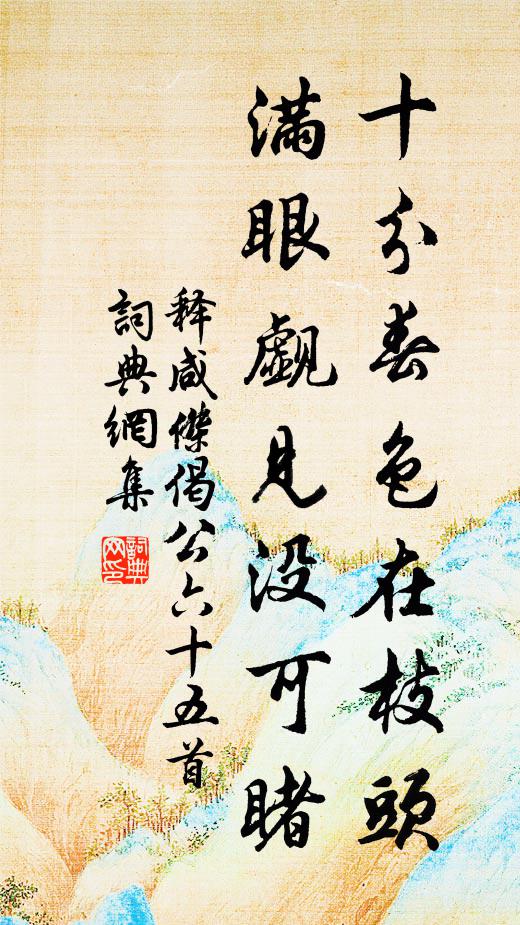 十分春色在枝頭
滿眼覷見没可睹
释咸傑偈公六十五首
詞典網集
詞典网印